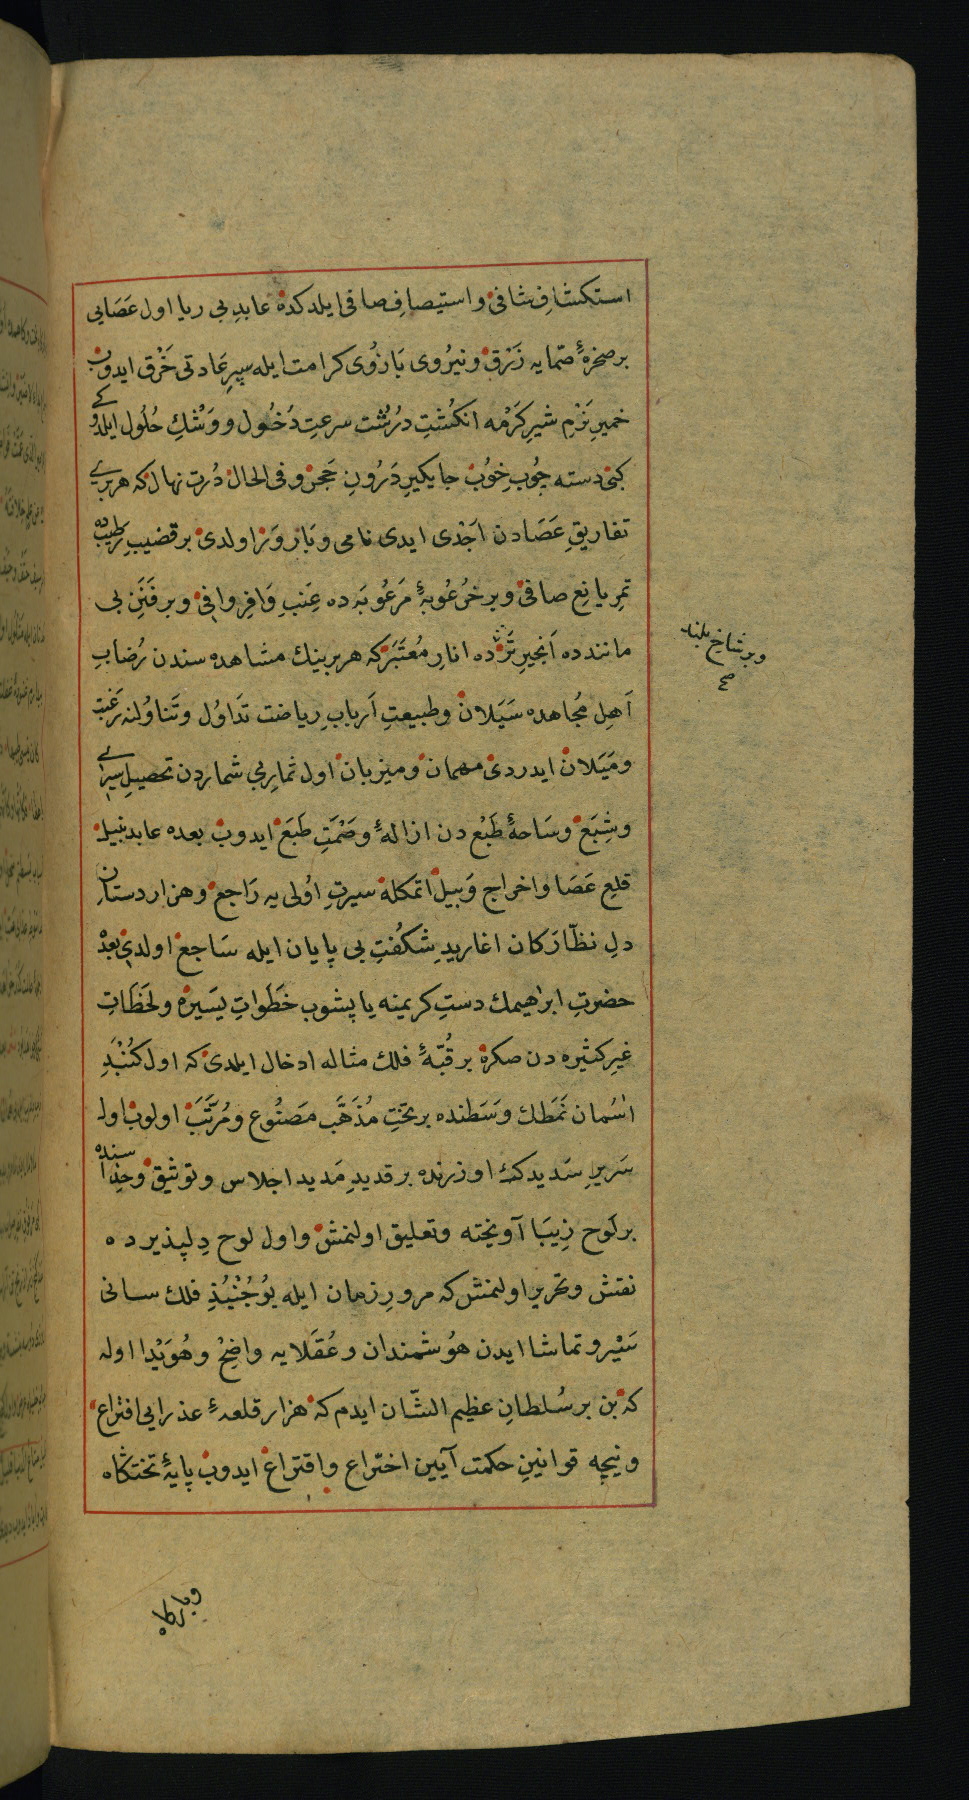 استكشافِ شافی و استیصافِ صافی ایلدكده عابدِ بی ریا اول عَصَایی
بر صخرهٔ صمّایه زَرْق و نیرُوی بَازُوی كرامت ایله سپرِ عَادتی خَرْق ایدوب
خمیرِ نَرْمِ شیرِ كَرْمه انكُشتِ دُرُشت سرعتِ دُخُول و وَشْكِ حُلُول ایلدوكی
كبی دسته چُوبِ خُوبْ جایكیرِ دَرُونِ حَجَر و فی الحال دُرت نهال كه هر بری
تفاریقِ عَصَادن اَجْدی ایدی نامی و بَارْوَر اولدی بر قضیبِ رَطِیبْده
تمرِ یانِع صافی و بر خُرعُوبهٔ مَرغُوبَه ده عِنَبِ وَافِرِ وافی و بر فَنَنِ بی
ماننده ده اَنجیرِ تَر ده انارِ مُعتَبَر كه هر برینك مشاهده سندن رُضابِ
اَهلِ مُجاهده سَیَلان و طبیعتِ اَربابِ ریاضت تَداوُل و تَناوُلنه رَغبت
و مَیَلان ایدردی مهمان و میزبان اول ثمارِ بی شماردن تحصیلِ سیرابی
و شِبَع و سَاحهٔ طَبْع دن ازالهٔ وَصْمَتِ طَبَع ایدوب بعده عابدِ نبیل
قلعِ عَصَا و اخراجِ وَبیل اتمكله سیرتِ اوُلی یه رَاجع و هزار دستانِ
دلِ نظّاركان اغاریدِ شكُفتِ بی پایان ایله سَاجع اولدی بعدْ
حضرتِ ابرٰهیمك دستِ كریمنه یاپشوب خَطَواتِ یَسیره و لَحَظَاتِ
غیرِ كثیره دن صكره بر قُبّهٔ فلك مثاله ادخال ایلدی كه اول كُنْبَدِ
اٰسُمان نَمَطك وَسَطنده بر تختِ مُذَهَّب مَصنُوع و مُرَتَّبْ اولوب اول
سَریرِ سَدیدك اوزرنده بر قدیدِ مَدید اجلاس و توثیق و حِذاسنده
بر لَوح زِیبَا آویخته و تعلیق اولنمش و اول لوح دِلپذیرده
نقش و تحریر اولنمش كه مرورِ زمان ایله بُو جُنْبُذِ فلك سانی
سَیْر و تماشا ایدن هُوشمندان و عُقَلایه واضِحْ و هُوَیْدا اوله
كه بن بر سُلطانِ عظیم الشّان ایدم كه هزار قلعهٔ عذرایی افتراع
و نیچه قوانینِ حكمت آیین اختراع و اقتراع ایدوب پایهٔ تختكاه
و بر شاخِ بلند
صح